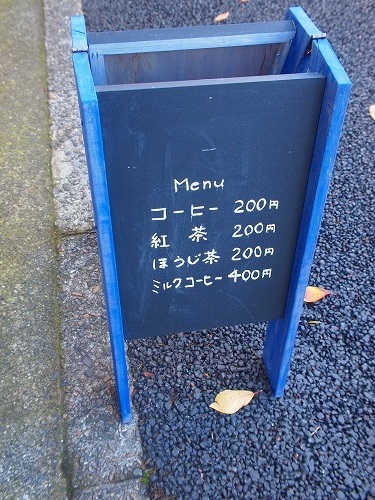 Menu
コーヒー 200円
紅茶 200円
ほうじ茶 200円
ミルクコーヒー 400円